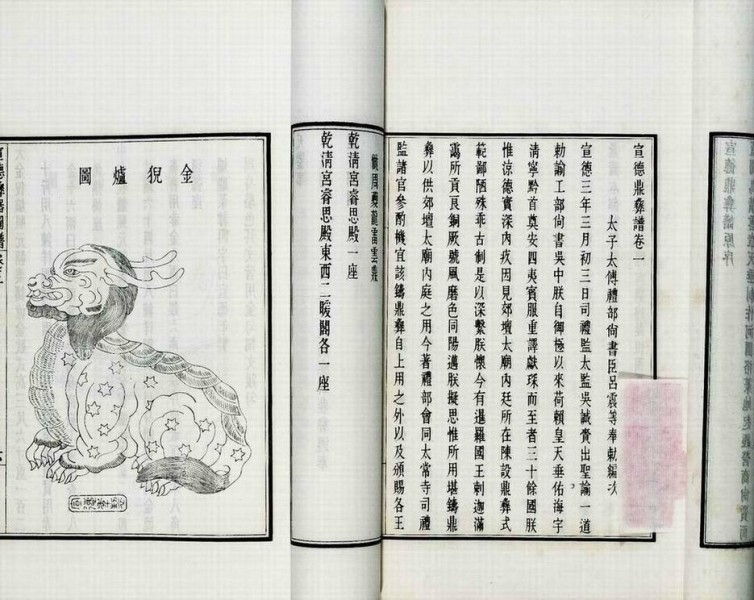 宣德鼎彝譜卷一
太子太傅禮部尙書臣呂震等奉勅編次
宣德三年三月初三日司禮監太監吳誠賫出聖諭一道
勅諭工部尙書吳中朕自御極以來荷賴皇天垂佑海宇
清寧黔首奠安四夷賓服重譯獻琛而至者三十餘國朕
惟涼德實深內疚因見郊壇太廟內廷所在陳設鼎彝式
範鄙陋殊乖古制是以深繫朕懷今有暹羅國王剌迦滿
靄所貢良銅厥號風磨色同陽邁朕擬思惟所用堪鑄鼎
彝以供郊壇太廟內庭之用今著禮部會同太常寺司禮
監諸官參酌機宜該鑄鼎彝自上用之外以及頒賜各王
乾清宮睿思殿一座
乾清宮睿思殿東西二暖閣各一座
金猊爐圖
宣德彝器圖譜